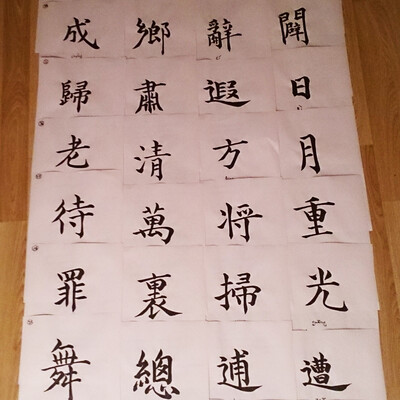 闢日月重光遭
辭遐方将掃逋
鄉肅清萬裏總
成歸老待罪舞